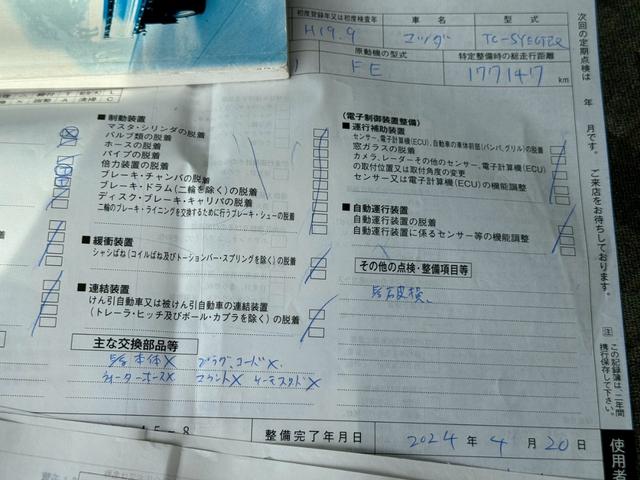 初度登録年又は初度検査年
車名
型式
H19.9
マツダ
原動機の型式
特定整備時の総走行距離
FE
177147 km
次回の定期点検は 年 月です。ご来店をお待ちしております。
■制動装置
マスタ・シリンダの脱着
バルブ類の脱着
ホースの脱着
パイプの脱着
倍力装置の脱着
ブレーキ・チャンバの脱着
ブレーキ・ドラム(二輪を除く)の脱着
ディスク・ブレーキ・キャリパの脱着
二輪のブレーキ・ライニングを交換するために行うブレーキ・シューの脱着
■緩衝装置
シャシばね(コイルばね及びトーションバー・スプリングを除く)の脱着
■連結装置
けん引自動車又は被けん引自動車の連結装置
(トレーラ・ヒッチ及びボール・カプラを除く)の脱着
(電子制御装置整備)
■運行補助装置
センサー、電子計算機(ECU)、自動車の車体前部(バンパ、グリル)の脱着
窓ガラスの脱着
カメラ、レーダーその他のセンサー、電子計算機(ECU)
の取付位置又は取付角度の変更
センサー又は電子計算機(ECU)の機能調整
■自動運行装置
自動運行装置の脱着
自動運行装置に係るセンサー等の機能調整
その他の点検・整備項目等
主な交換部品等
本体X プラグ、コードX
ウォーターホースX マウントX サーモスタットX
整備完了年月日
2024年4月20日
注
この記録簿は、二年間
携行保存して下さい。
使用者